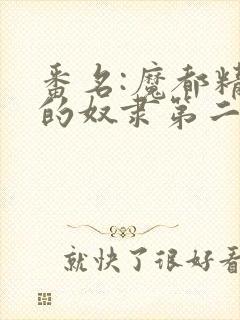 番名:魔都精
的奴隶第二
就快了很好看